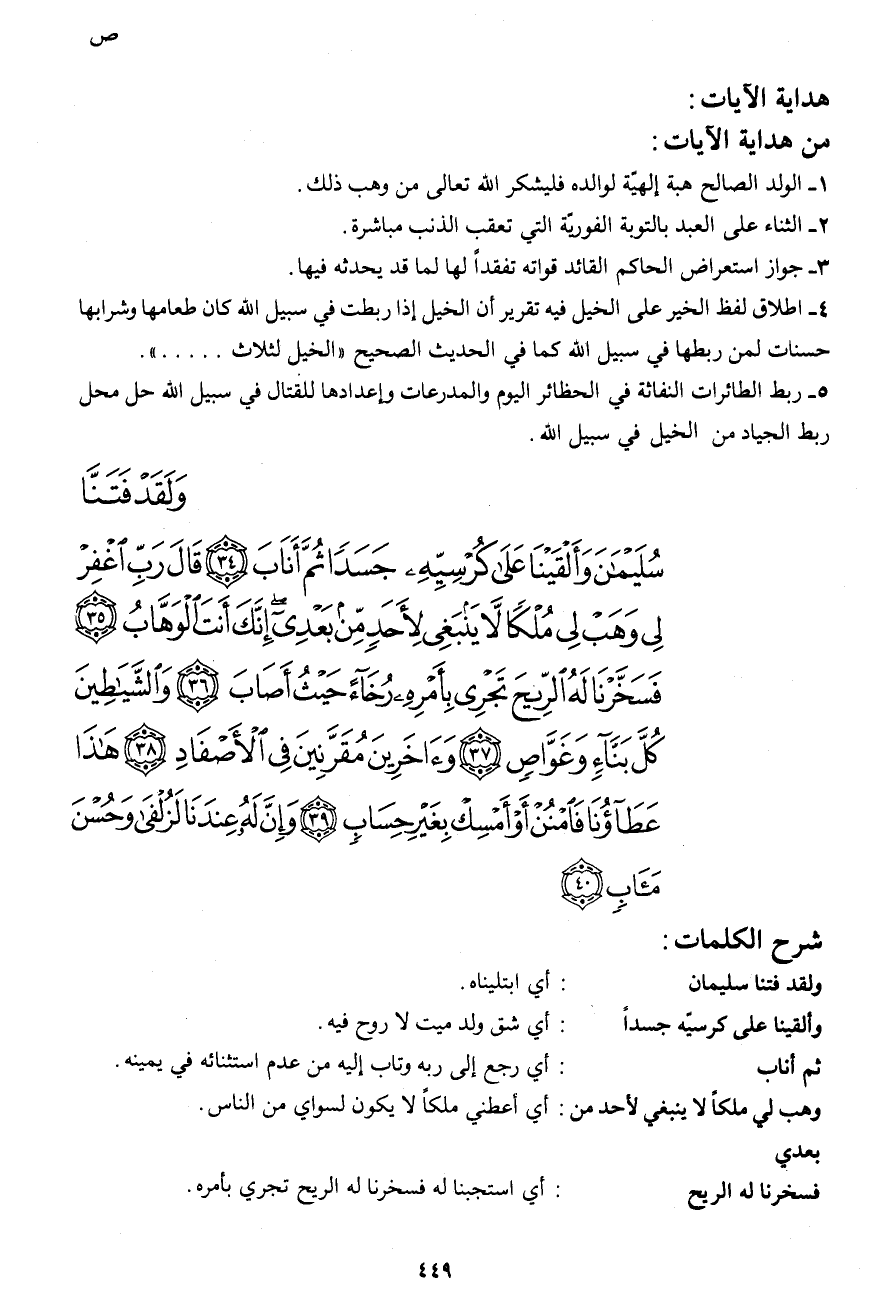 ص
هداية الآيات :
من هداية الآيات :
١ـ الولد الصالح هبة إلهيّة لوالده فليشكر الله تعالى من وهب ذلك .
٢ـ الثناء على العبد بالتوبة الفوريّة التي تعقب الذنب مباشرة .
٣ـ جواز استعراض الحاكم القائد قواته تفقداً لها لما قد يحدثه فيها .
٤ـ اطلاق لفظ الخير على الخيل فيه تقرير أن الخيل إذا ربطت في سبيل الله كان طعامها وشرابها
حسنات لمن ربطها في سبيل الله كما في الحديث الصحيح «الخيل لثلاث . . . . .» .
٥ـ ربط الطائرات النفاثة في الحظائر اليوم والمدرعات وإعدادها للقتال في سبيل الله حل محل
ربط الجياد من الخيل في سبيل الله .
وَلَقَدْ فَتَنَّا
سُلَيْمَٰنَ وَأَلْقَيْنَا عَلَىٰ كُرْسِيِّهِۦ جَسَدًا ثُمَّ أَنَابَ ٣٤ قَالَ رَبِّ ٱغْفِرْ
لِى وَهَبْ لِى مُلْكًا لَّا يَنۢبَغِى لِأَحَدٍ مِّنۢ بَعْدِىٓ ۖ إِنَّكَ أَنتَ ٱلْوَهَّابُ ٣٥
فَسَخَّرْنَا لَهُ ٱلرِّيحَ تَجْرِى بِأَمْرِهِۦ رُخَآءً حَيْثُ أَصَابَ ٣٦ وَٱلشَّيَٰطِينَ
كُلَّ بَنَّآءٍ وَغَوَّاصٍ ٣٧ وَءَاخَرِينَ مُقَرَّنِينَ فِى ٱلْأَصْفَادِ ٣٨ هَٰذَا
عَطَآؤُنَا فَٱمْنُنْ أَوْ أَمْسِكْ بِغَيْرِ حِسَابٍ ٣٩ وَإِنَّ لَهُۥ عِندَنَا لَزُلْفَىٰ وَحُسْنَ
مَـَٔابٍ ٤٠
شرح الكلمات :
ولقد فتنا سليمان : أي ابتليناه .
وألقينا على كرسيّه جسداً : أي شق ولد ميت لا روح فيه .
ثم أناب : أي رجع إلى ربه وتاب إليه من عدم استثنائه في يمينه .
وهب لي ملكاً لا ينبغي لأحد من : أي أعطني ملكاً لا يكون لسواي من الناس .
بعدي
فسخرنا له الريح : أي استجبنا له فسخرنا له الريح تجري بأمره .
٤٤٩